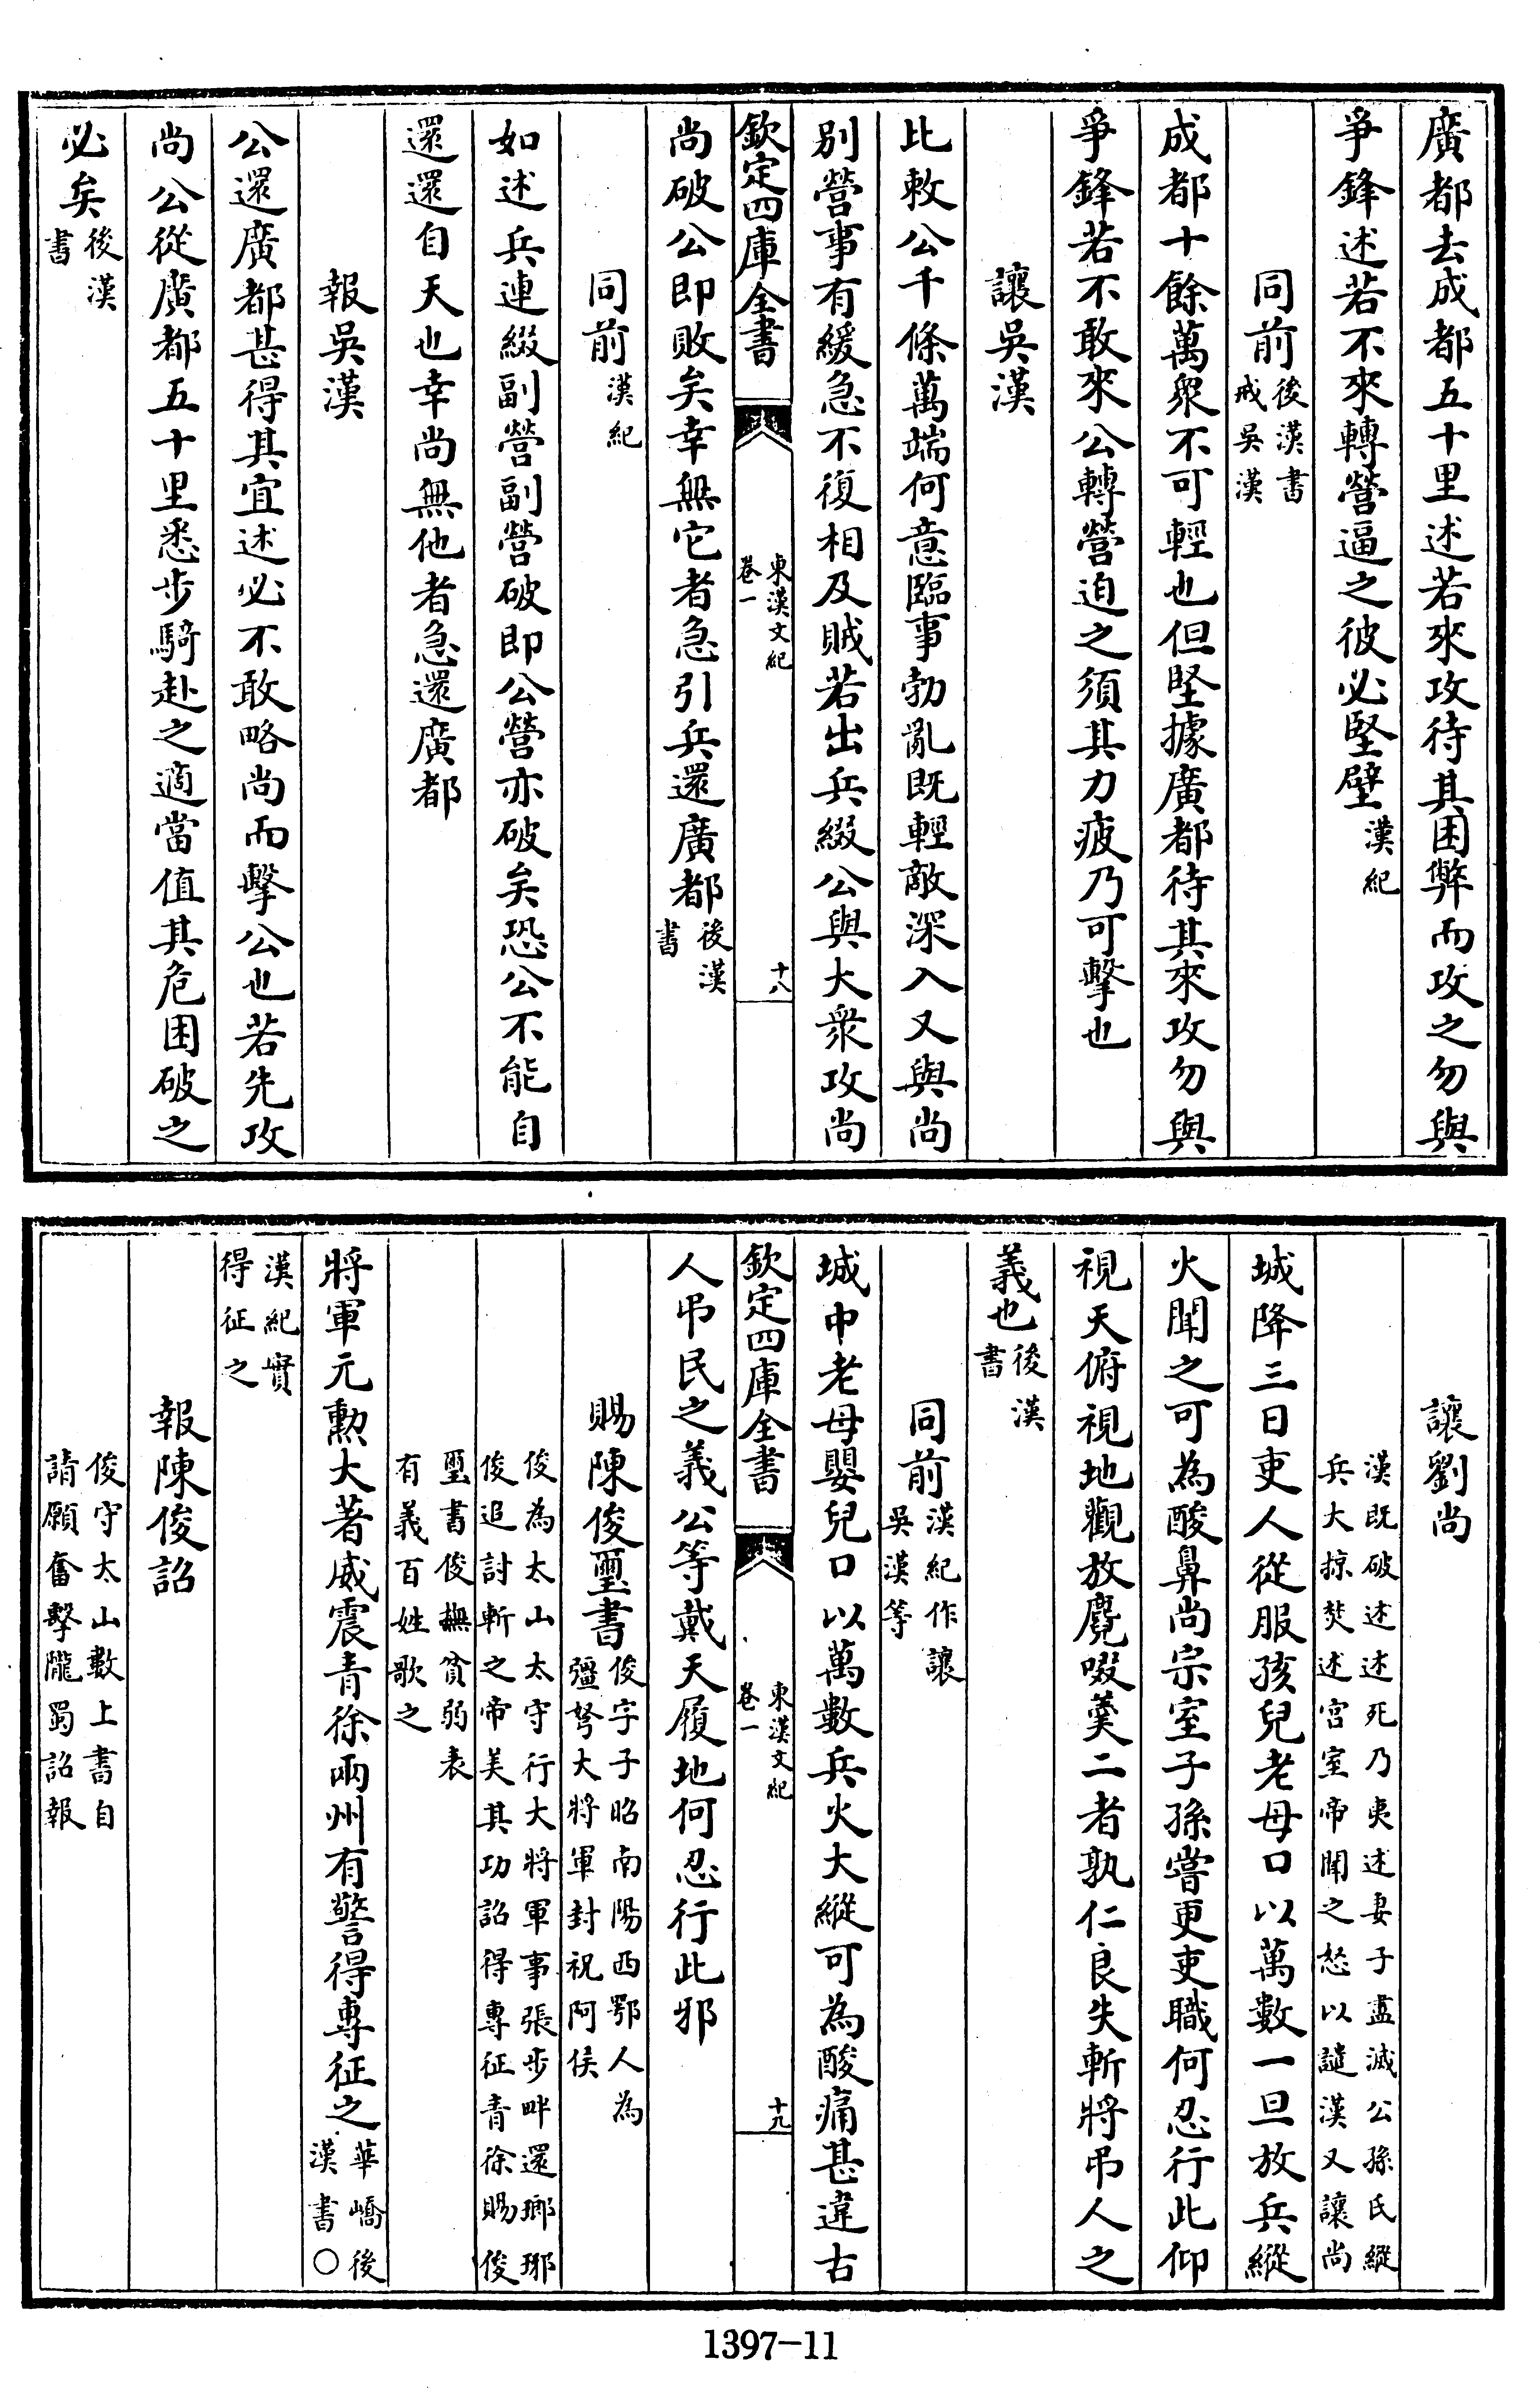 廣都去成都五十里述若來攻待其困弊而攻之勿與
爭鋒述若不來轉營逼之彼必堅壁漢紀
同前後漢書戒吳漢
成都十餘萬衆不可輕也但堅據廣都待其來攻勿與
爭鋒若不敢來公轉營迫之須其力疲乃可擊也
讓吳漢
比敕公千條萬端何意臨事勃亂既輕敵深入又與尚
別營事有緩急不復相及賊若出兵綴公與大衆攻尚
欽定四庫全書
東漢文紀
卷一
十八
尚破公即敗矣幸無它者急引兵還廣都後漢書
同前漢紀
如述兵連綴副營副營破即公營亦破矣恐公不能自
還還自天也幸尚無他者急還廣都
報吳漢
公還廣都甚得其宜述必不敢略尚而擊公也若先攻
尚公從廣都五十里悉步騎赴之適當值其危困破之
必矣後漢書
讓劉尚
漢既破述述死乃夷述妻子盡滅公孫氏縱
兵大掠焚述宮室帝聞之怒以譴漢又讓尚
城降三日吏人從服孩兒老母口以萬數一旦放兵縱
火聞之可為酸鼻尚宗室子孫嘗更吏職何忍行此仰
視天俯視地觀放麑啜羹二者孰仁良失斬將弔人之
義也後漢書
同前漢紀作讓吳漢等
城中老母嬰兒口以萬數兵火大縱可為酸痛甚違古
欽定四庫全書
東漢文紀
卷一
十九
人弔民之義公等戴天履地何忍行此邪
賜陳俊璽書俊字子昭南陽西鄂人為彊弩大將軍封祝阿侯
俊為太山太守行大將軍事張步畔還瑯琊
俊追討斬之帝美其功詔得專征青徐賜俊
璽書俊撫貧弱表
有義百姓歌之
將軍元勲大著威震青徐兩州有警得專征之華嶠後漢書〇
漢紀實
得征之
報陳俊詔
俊守太山數上書自
請願奮擊隴蜀詔報
1397-11